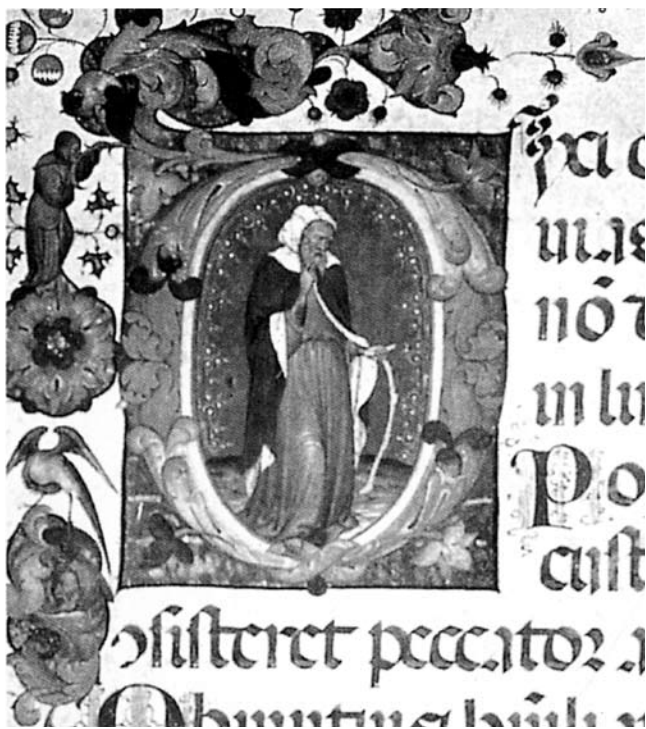 ixi c
uias
nō d
in lin
Po
cust
ɔsisteret peccator a
Obmutui